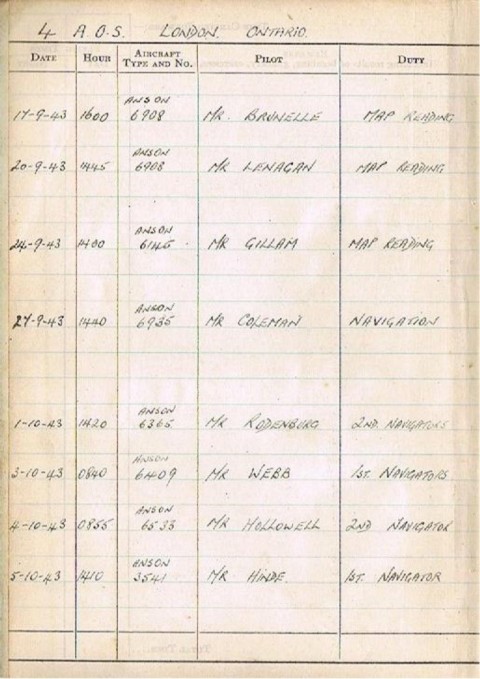 4 A.O.S. LONDON. ONTARIO.
DATE HOUR AIRCRAFT TYPE AND NO. PILOT DUTY
ANSON
17-9-43 1600 6908 MR. BRUNELLE MAP READING
ANSON
20-9-43 1445 6908 MR LENAGAN MAP READING
ANSON
24-9-43 1400 6145 MR GILLAM MAP READING
ANSON
27-9-43 1440 6935 MR COLEMAN NAVIGATION
ANSON
1-10-43 1420 6365 MR RODENBURG 2ND NAVIGATORS
ANSON
3-10-43 0840 6409 MR WEBB 1ST. NAVIGATORS
ANSON
4-10-43 0855 6533 MR HOLLOWELL 2ND NAVIGATOR
ANSON
5-10-43 1410 3541 MR HINDE. 1ST. NAVIGATOR